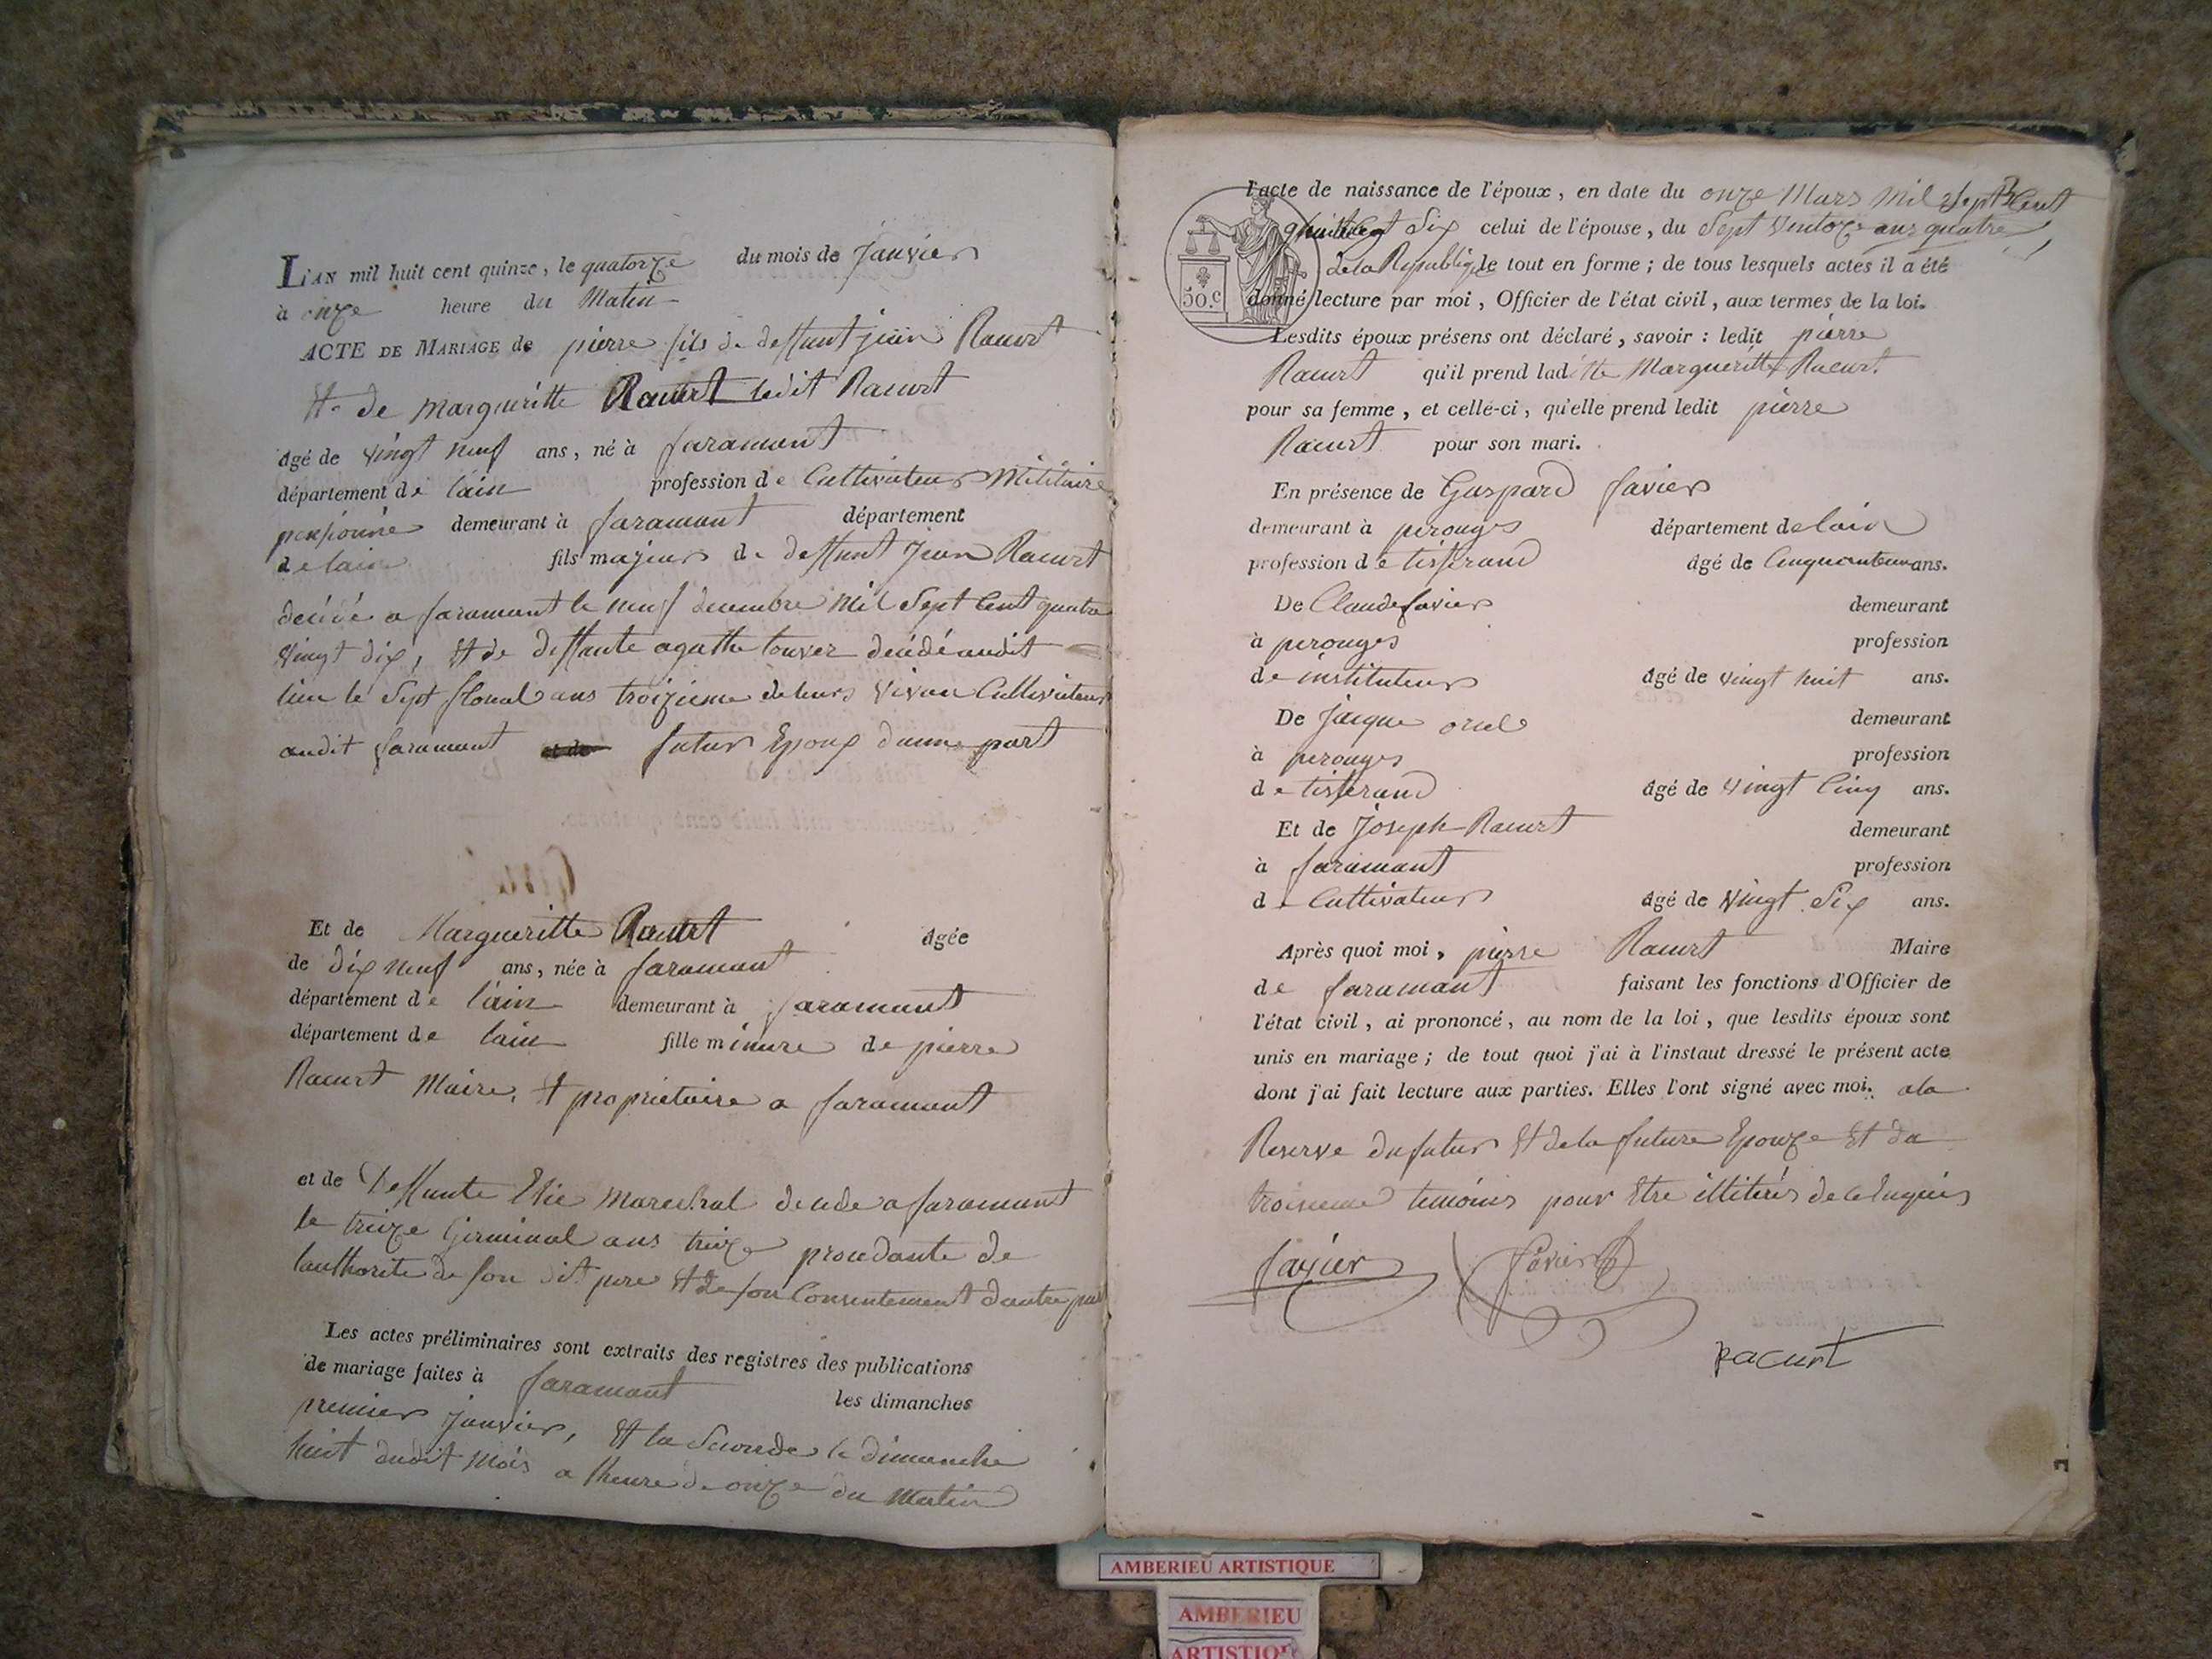 L'AN mil huit cent quinze, le quatorze du mois de Janvier
à onze heure du Matin
ACTE DE MARIAGE de pierre fils de deffunt jean Racurt
Et de margueritte Racurt ledit Racurt
âgé de vingt neuf ans, né à faramant
département de lain profession de Cultivateur Militaire
pensionné demeurant à faramant département
de lain fils majeur de deffunt Jean Racurt
decédé a faramant le neuf decembre Mil Sept Cent quatre
vingt dix, Et de deffante agathe touver decédé audit
lieu le Sept floreal ans troizieme de leurs vivan Cultivateurs
audit faramant futur Epoux dunne part
Et de Margueritte Racurt âgée
de dix neuf ans, née à faramant
département de lain demeurant à faramant
département de lain fille mineure de pierre
Racurt Maire, Et proprietaire a faramant
et de Deffunte Marechal decede a faramant
le treize Germinal ans treize procedante de
lauthorité de son dit pere Et de son Consentement dautre part
Les actes préliminaires sont extraits des registres des publications
de mariage faites à faramant les dimanches
premier Janvier, Et la Seconde le dimanche
huit dudit Mois a lheure de onze du Matin
l'acte de naissance de l'époux, en date du onze Mars Mil Sept Cent
Six celui de l'épouse, du Sept Ventoze ans quatre
de la Republique le tout en forme; de tous lesquels actes il a été
50.c donné lecture par moi, Officier de l'état civil, aux termes de la loi.
Lesdits époux présens ont déclaré, savoir : ledit pierre
Racurt qu'il prend laditte Margueritte Racurt
pour sa femme, et celle-ci, qu'elle prend ledit pierre
Racurt pour son mari.
En présence de Gaspard favier
demeurant à perouges département de lain
profession de tisserand âgé de ans.
De Claude favier demeurant
à perouges profession
de instituteur âgé de vingt huit ans.
De Jacque demeurant
à perouges profession
de tisserand âgé de vingt Cinq ans.
Et de Joseph Racurt demeurant
à faramant profession
de Cultivateur âgé de vingt Six ans.
Après quoi moi, pierre Racurt Maire
de faramant faisant les fonctions d'Officier de
l'état civil, ai prononcé, au nom de la loi, que lesdits époux sont
unis en mariage; de tout quoi j'ai à l'instaut dressé le présent acte
dont j'ai fait lecture aux parties. Elles l'ont signé avec moi. a la
Reserve du futur Et de la future Epouze Et du
troisieme temoins pour Etre illiterés de ce Enquis
favier favier
Racurt
AMBERIEU ARTISTIQUE
AMBERIEU
ARTISTIQUE